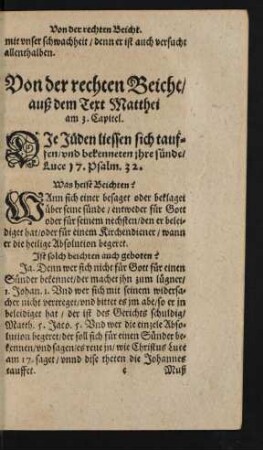 Von der rechten Beicht.
mit vnser schwachheit / denn er ist auch versucht
allenthalben.
Von der rechten Beicht /
auß dem Text Matthei
am 3. Capitel.
DJe Jüden liessen sich tauf-
fen / vnd bekenneten jhre sünde /
Luce 17. Psalm. 32.
Was heist Beichten?
WAnn sich einer besaget oder beklaget
über seine sünde / entweder für Gott
oder für seinem nechsten / den er belei-
diget hat / oder für einem Kirchendiener / wann
er die heilige Absolution begeret.
Jst solch beichten auch geboten?
Ja. Denn wer sich nicht für Gott für einen
Sünder bekennet / der machet jhn zum lügner /
1. Johan. 1. Vnd wer sich mit seinem widersa-
cher nicht verreget / vnd bittet es jm abe / so er jn
beleidiget hat / der ist des Gerichts schuldig /
Matth. 5. Jaco. 5. Vnd wer die einzele Abso-
lution begeret / der soll sich für einen Sünder be-
kennen / vnd sagen / es rewe jn / wie Christus Luce
am 17. saget / vnnd dise theten die Johannes
tauffet.
c Muß